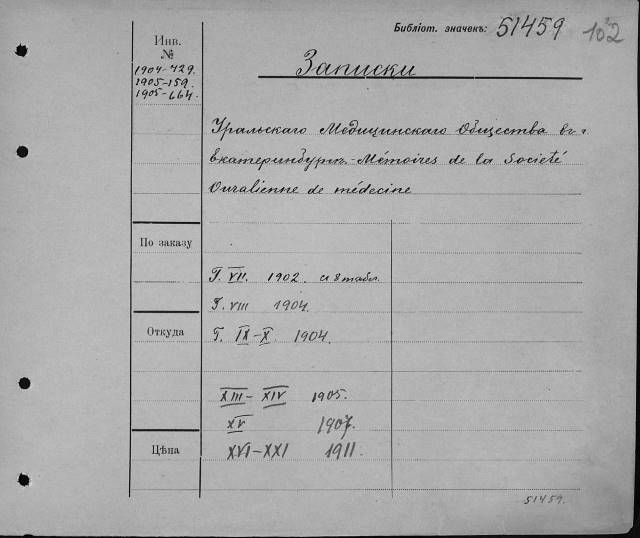 Библіот. значекъ: 51459 102
Инв.
№
1904-429.
1905-159.
1905-664.
Записки
Уральскаго Медицинскаго Общества въ г.
Екатеринбургѣ.-Mémoires de la Societé
Ouralienne de médecine
По заказу
Г. VII. 1902. съ 8 табл.
Г. VIII 1904.
Откуда
Г. IX-X. 1904.
XIII-XIV 1905.
XV 1907.
Цѣна
XVI-XXI 1911.
51459.